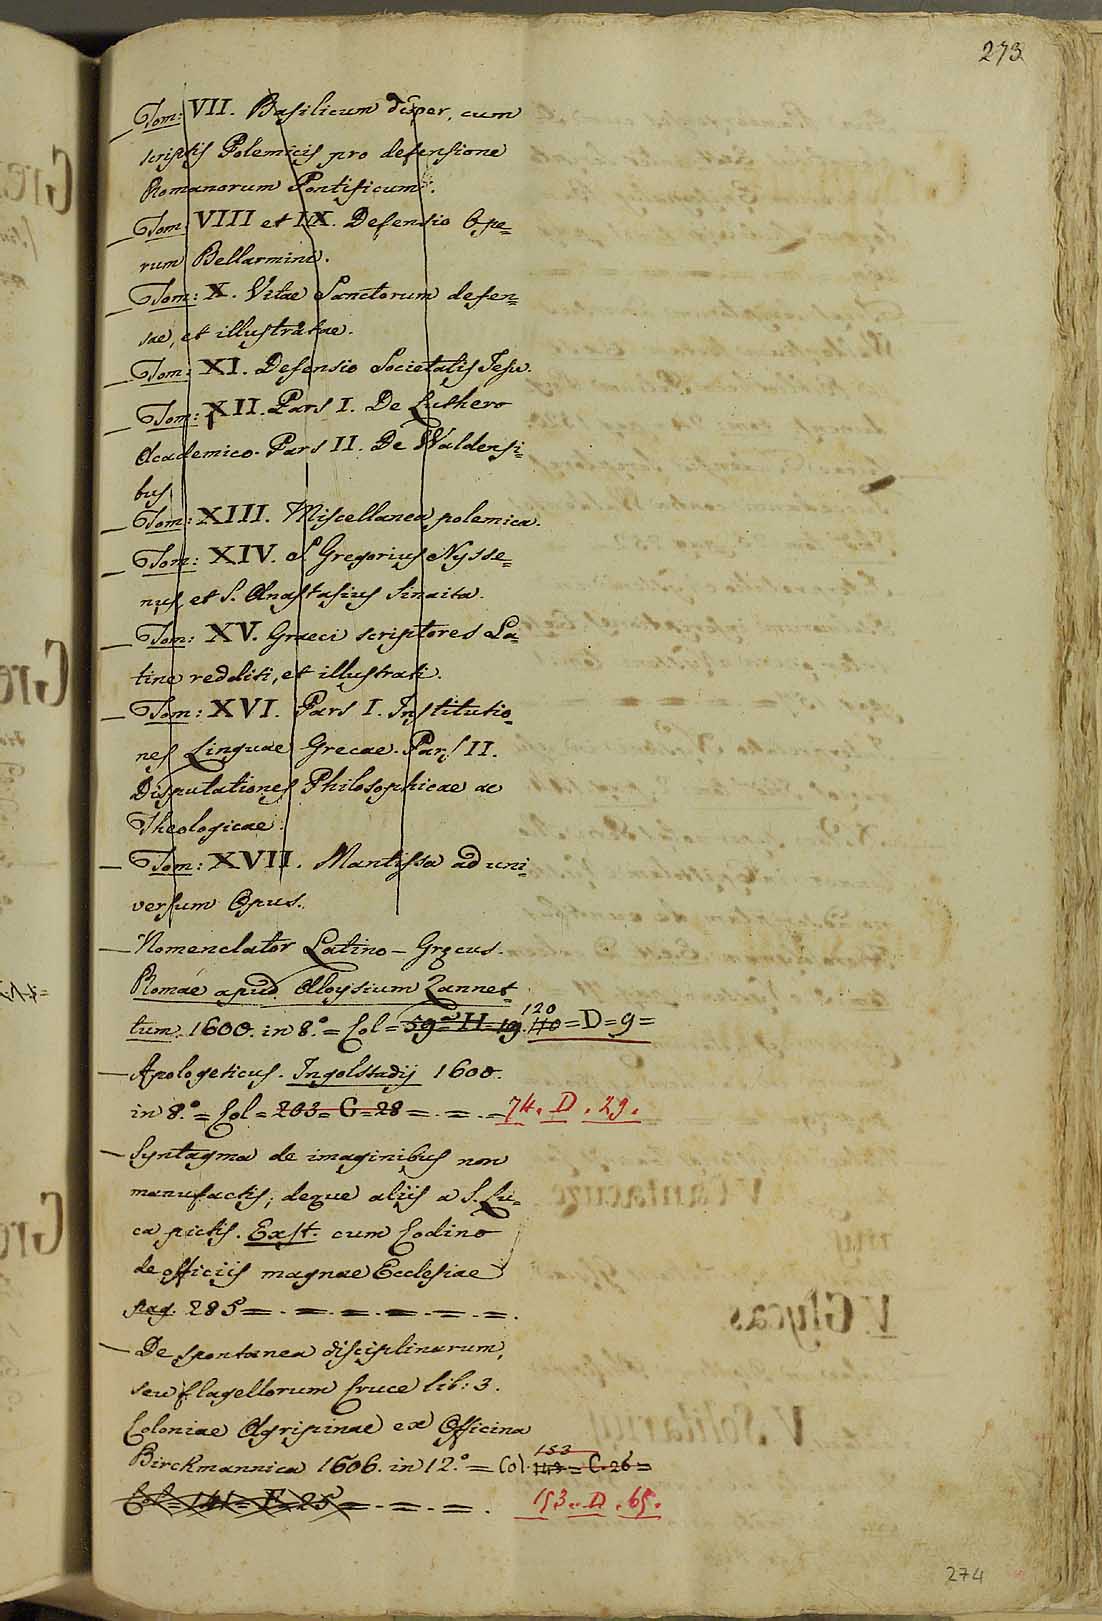 273
Tom: VII. Basilicum disper, cum
scriptis Polemicis pro defensione
Romanorum Pontificum.
Tom: VIII et IX. Defensio Ope=
rum Bellarmini.
Tom: X. Vitae Sanctorum defen=
sae, et illustratae.
Tom: XI. Defensio Societatis Jesu.
Tom: XII. Pars I. De Luthero
Academico. Pars II. De Waldensi=
bus
Tom: XIII. Miscellanea polemica.
Tom: XIV. S. Gregorius Nysse=
nus, et S. Anastasius Sinaita.
Tom: XV. Graeci scriptores La=
tine redditi, et illustrati.
Tom: XVI. Pars I. Institutio=
nes Linguae Grecae. Pars II.
Disputationes Philosophicae ac
Theologicae.
Tom: XVII. Mantissa ad uni=
versum Opus.
— Nomenclator Latino-Gręcus.
Romae apud Aloysium Zannet=
tum. 1600. in 8.° = Col = 59 = H = 19. 110 120 = D = 9 =
— Apologeticus. Ingolstadij 1600.
in 8.° = Col = 203 = G = 28 = . = . = 74. D. 29.
— Syntagma de imaginibus non
manufactis, deque aliis a S. Lu=
ca pictis. Exst. cum Codino
de officiis magnae Ecclesiae
pag. 285 = . = . = . = . = . = .
— De spontanea disciplinarum,
seu flagellorum Cruce lib: 3.
Coloniae Agripinae ex Officina
Birckmannica 1606. in 12.° = Col. 153 = C. 26 =
Col = 141 = F = 25 = . = . = . 153. D. 65.
V. Cantacuze
V. Glycas
V. Solitarius
274